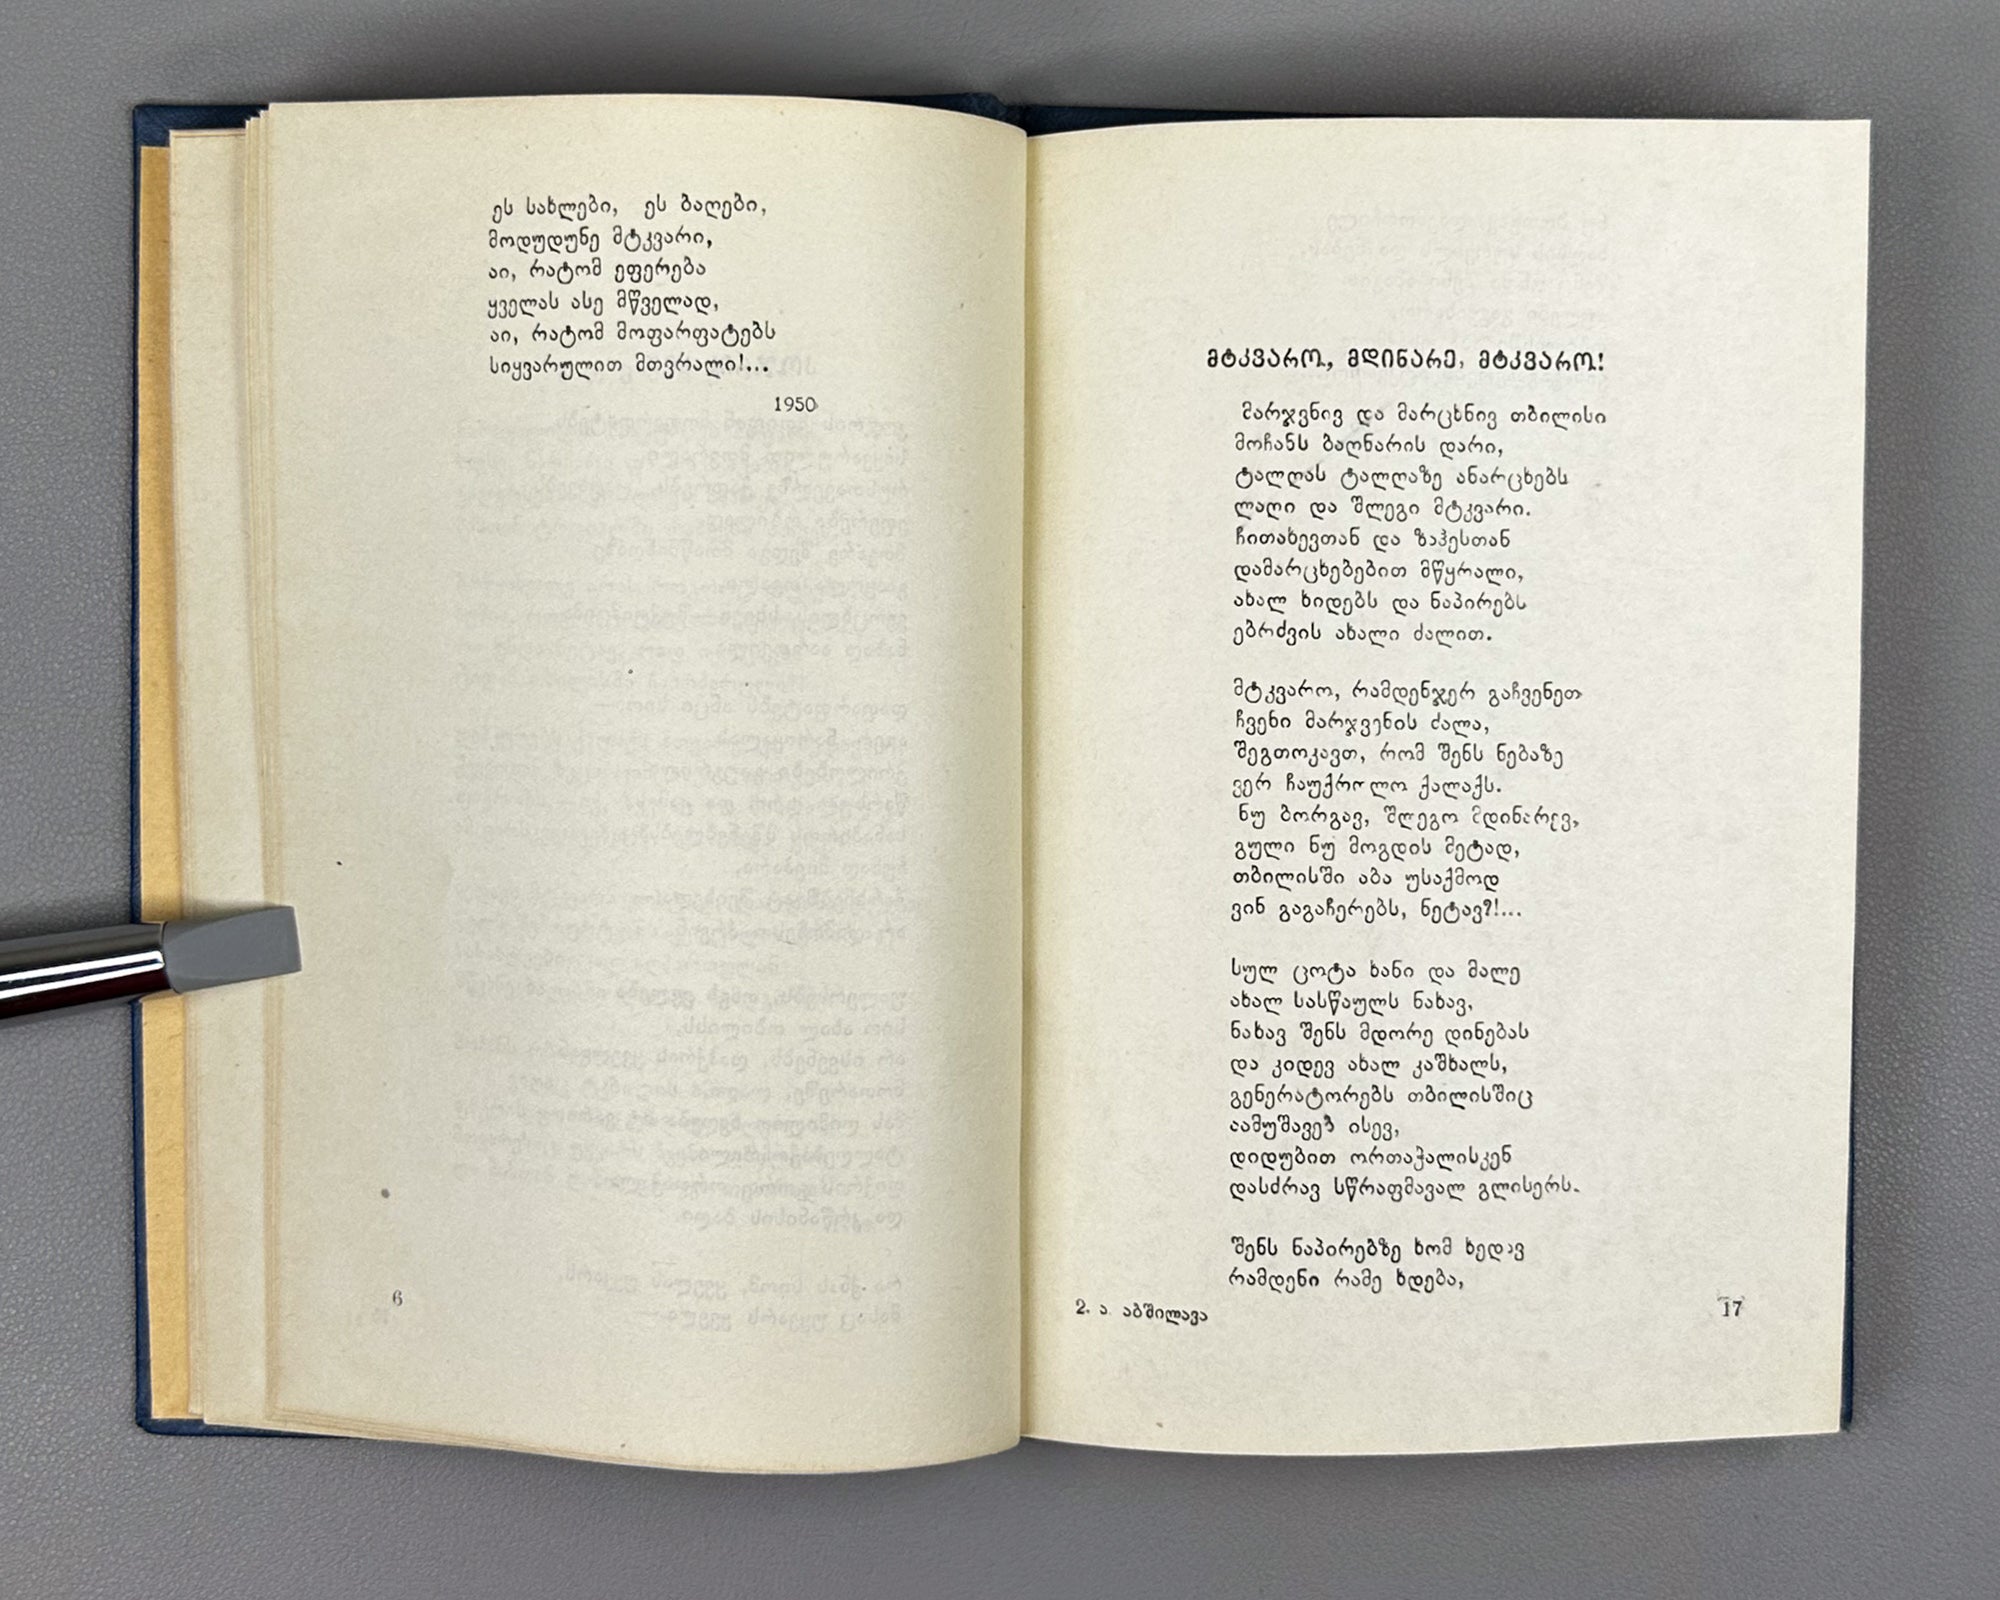 ეს სახლები, ეს ბაღები,
მოდუდუნე მტკვარი,
აი, რატომ ეფერება
ყველას ასე მწველად,
აი, რატომ მოფარფატებს
სიყვარულით მთვრალი!...
1950
6
მტკვარო, მდინარე, მტკვარო!
მარჯვნივ და მარცხნივ თბილისი
მოჩანს ბაღნარის დარი,
ტალღას ტალღაზე ანარცხებს
ლაღი და შლეგი მტკვარი.
ჩითახევთან და ზაჰესთან
დამარცხებებით მწყრალი,
ახალ ხიდებს და ნაპირებს
ებრძვის ახალი ძალით.
მტკვარო, რამდენჯერ გაჩვენეთ
ჩვენი მარჯვენის ძალა,
შეგთოკავთ, რომ შენს ნებაზე
ვერ ჩაუქროლო ქალაქს.
ნუ ბორგავ, შლეგო მდინარევ,
გული ნუ მოგდის მეტად,
თბილისში აბა უსაქმოდ
ვინ გაგაჩერებს, ნეტავ?!...
სულ ცოტა ხანი და მალე
ახალ სასწაულს ნახავ,
ნახავ შენს მდორე დინებას
და კიდევ ახალ კაშხალს,
გენერატორებს თბილისშიც
აამუშავებ ისევ,
დიდუბით ორთაჭალისკენ
დასძრავ სწრაფმავალ გლისერს.
შენს ნაპირებზე ხომ ხედავ
რამდენი რამე ხდება,
2. ა. აბშილავა
17